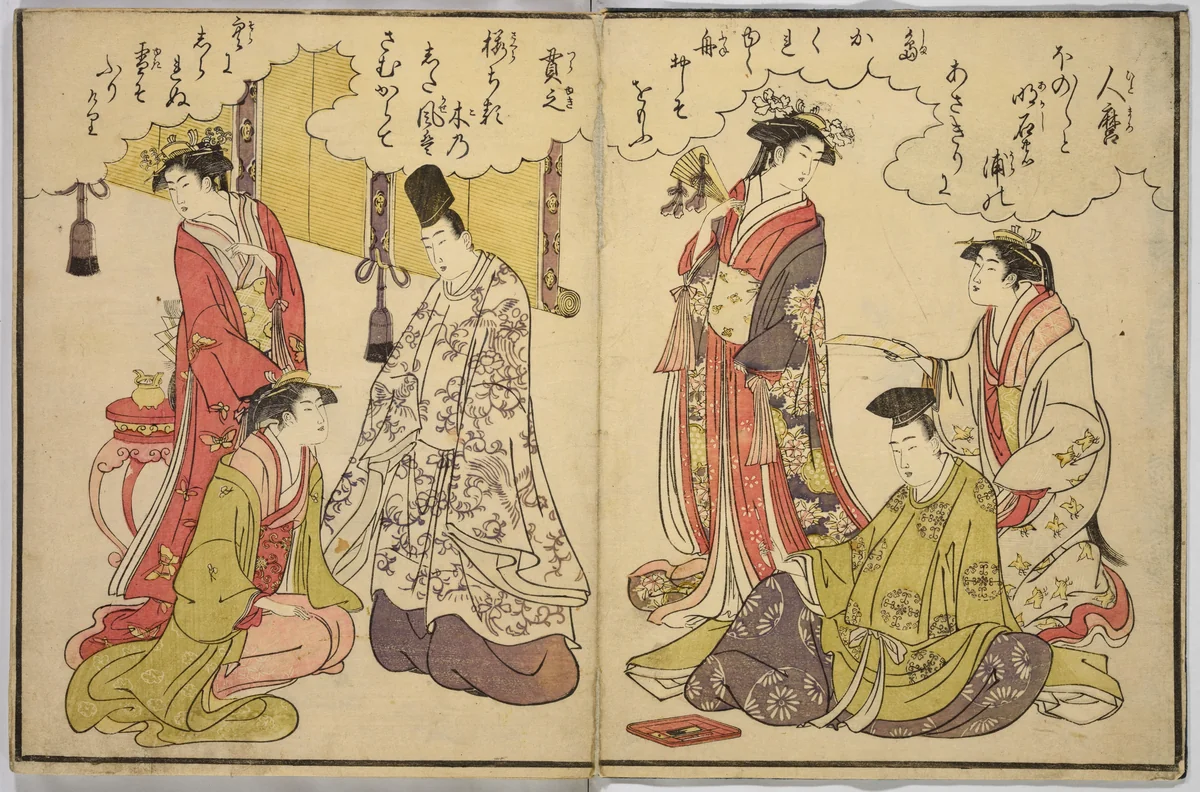 人麿
ほの〱と
明石の
浦の
あさきりに
島
か
く
れ
ゆく
舟
おしそ
をもふ
貫之
桜ちる
木の
した風は
さむからて
空に
しられぬ
雪そ
ふりける